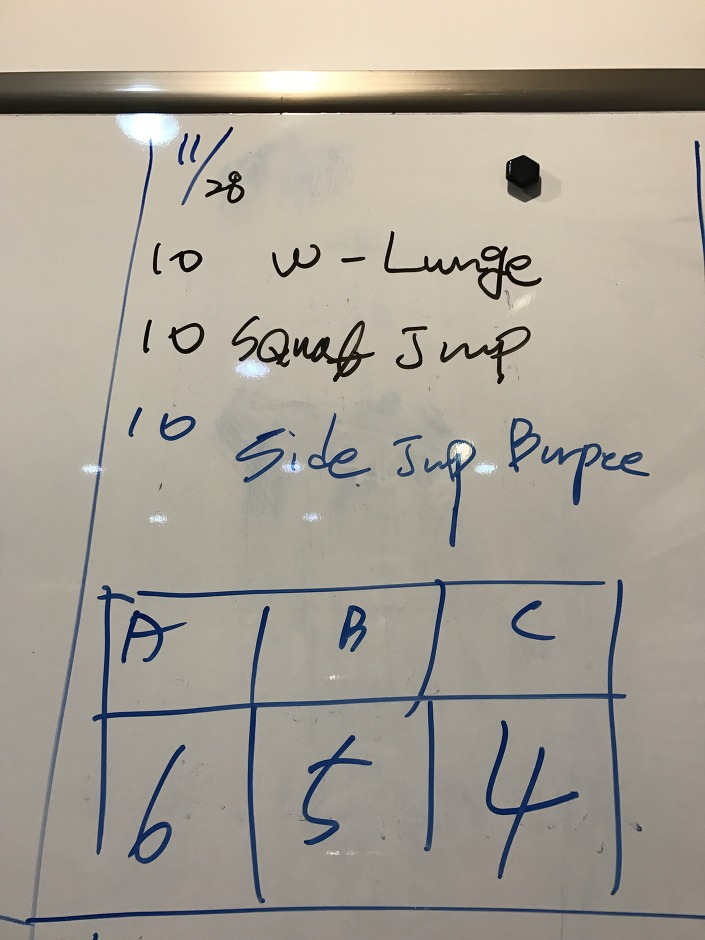 11/28
10 W-Lunge
10 Squat Jump
10 Side Jump Burpee
A B C
6 5 4